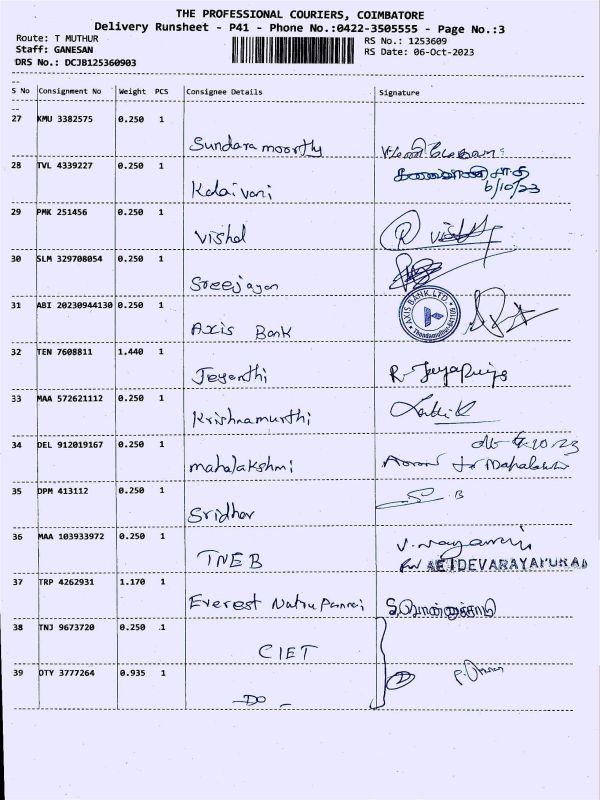 THE PROFESSIONAL COURIERS, COIMBATORE
Delivery Runsheet - P41 - Phone No.:0422-3505555 - Page No.:3
Route: T MUTHUR
RS No.: 1253609
Staff: GANESAN
RS Date: 06-Oct-2023
DRS No.: DCJB125360903
S No Consignment No Weight PCS Consignee Details Signature
27 KMU 3382575 0.250 1
Sundara moorthy
28 TVL 4339227 0.250 1
Kalaivani
6/10/23
29 PMK 251456 0.250 1
Vishal
30 SLM 329708054 0.250 1
Sreejayan
31 ABI 20230944130 0.250 1
Axis Bank AXIS BANK LTD
32 TEN 7608811 1.440 1
Jeyanthi R. Jeyapriya
33 MAA 572621112 0.250 1
Krishnamurthi
34 DEL 912019167 0.250 1
mahalakshmi
35 DPM 413112 0.250 1
Sridhar
36 MAA 103933972 0.250 1
TNEB
37 TRP 4262931 1.170 1
Everest
38 TNJ 9673720 0.250 1
CIET
39 DTY 3777264 0.935 1
-DO-